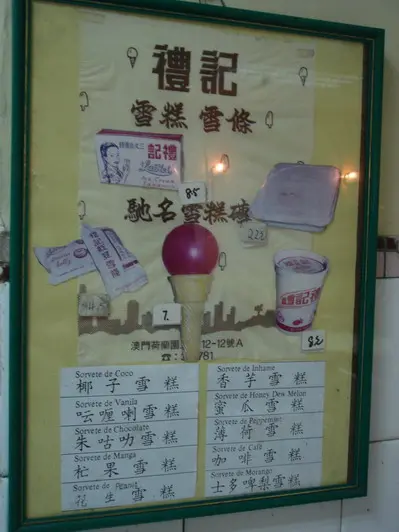 禮記
雪糕 雪條
禮記
Lai Kei
Ice Cream
8.5
馳名雪糕磚
22.
禮記紅豆雪條
禮記
7.
8.
澳門荷 12-12號A
781
Sorvete de Coco
椰子雪糕
Sorvete de Vanila
呍喱喇雪糕
Sorvete de Chocolate
朱咕叻雪糕
Sorvete de Manga
杧果雪糕
Sorvete de Peanut
花生雪糕
Sorvete de Inhame
香芋雪糕
Sorvete de Honey Dew Melon
蜜瓜雪糕
Sorvete de Peppermint
薄荷雪糕
Sorvete de Café
咖啡雪糕
Sorvete de Morango
士多啤梨雪糕